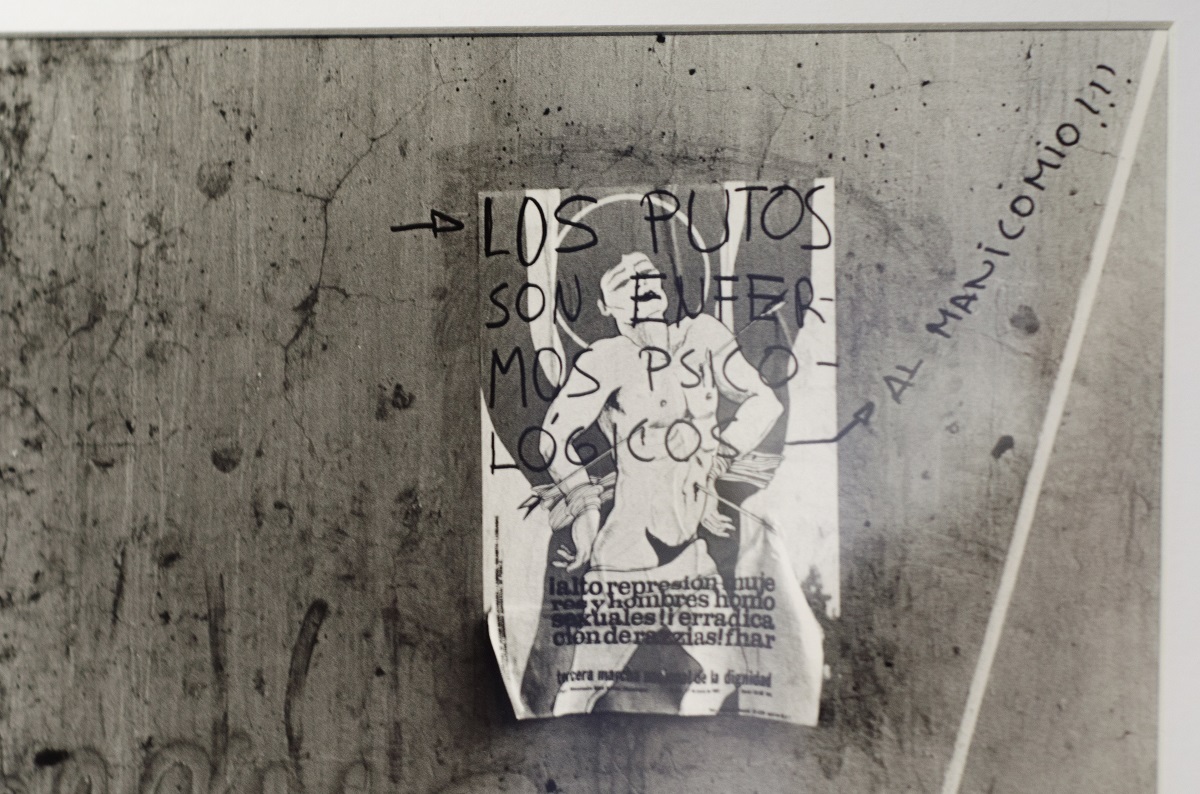 LOS PUTOS
SON ENFER-
MOS PSICO-
LÓGICOS
AL MANiCOMiO!!!
¡alto represión muje
res y hombres homo
sexuales! ¡erradica
ción de razzias! fhar
tercera marcha nacional de la dignidad